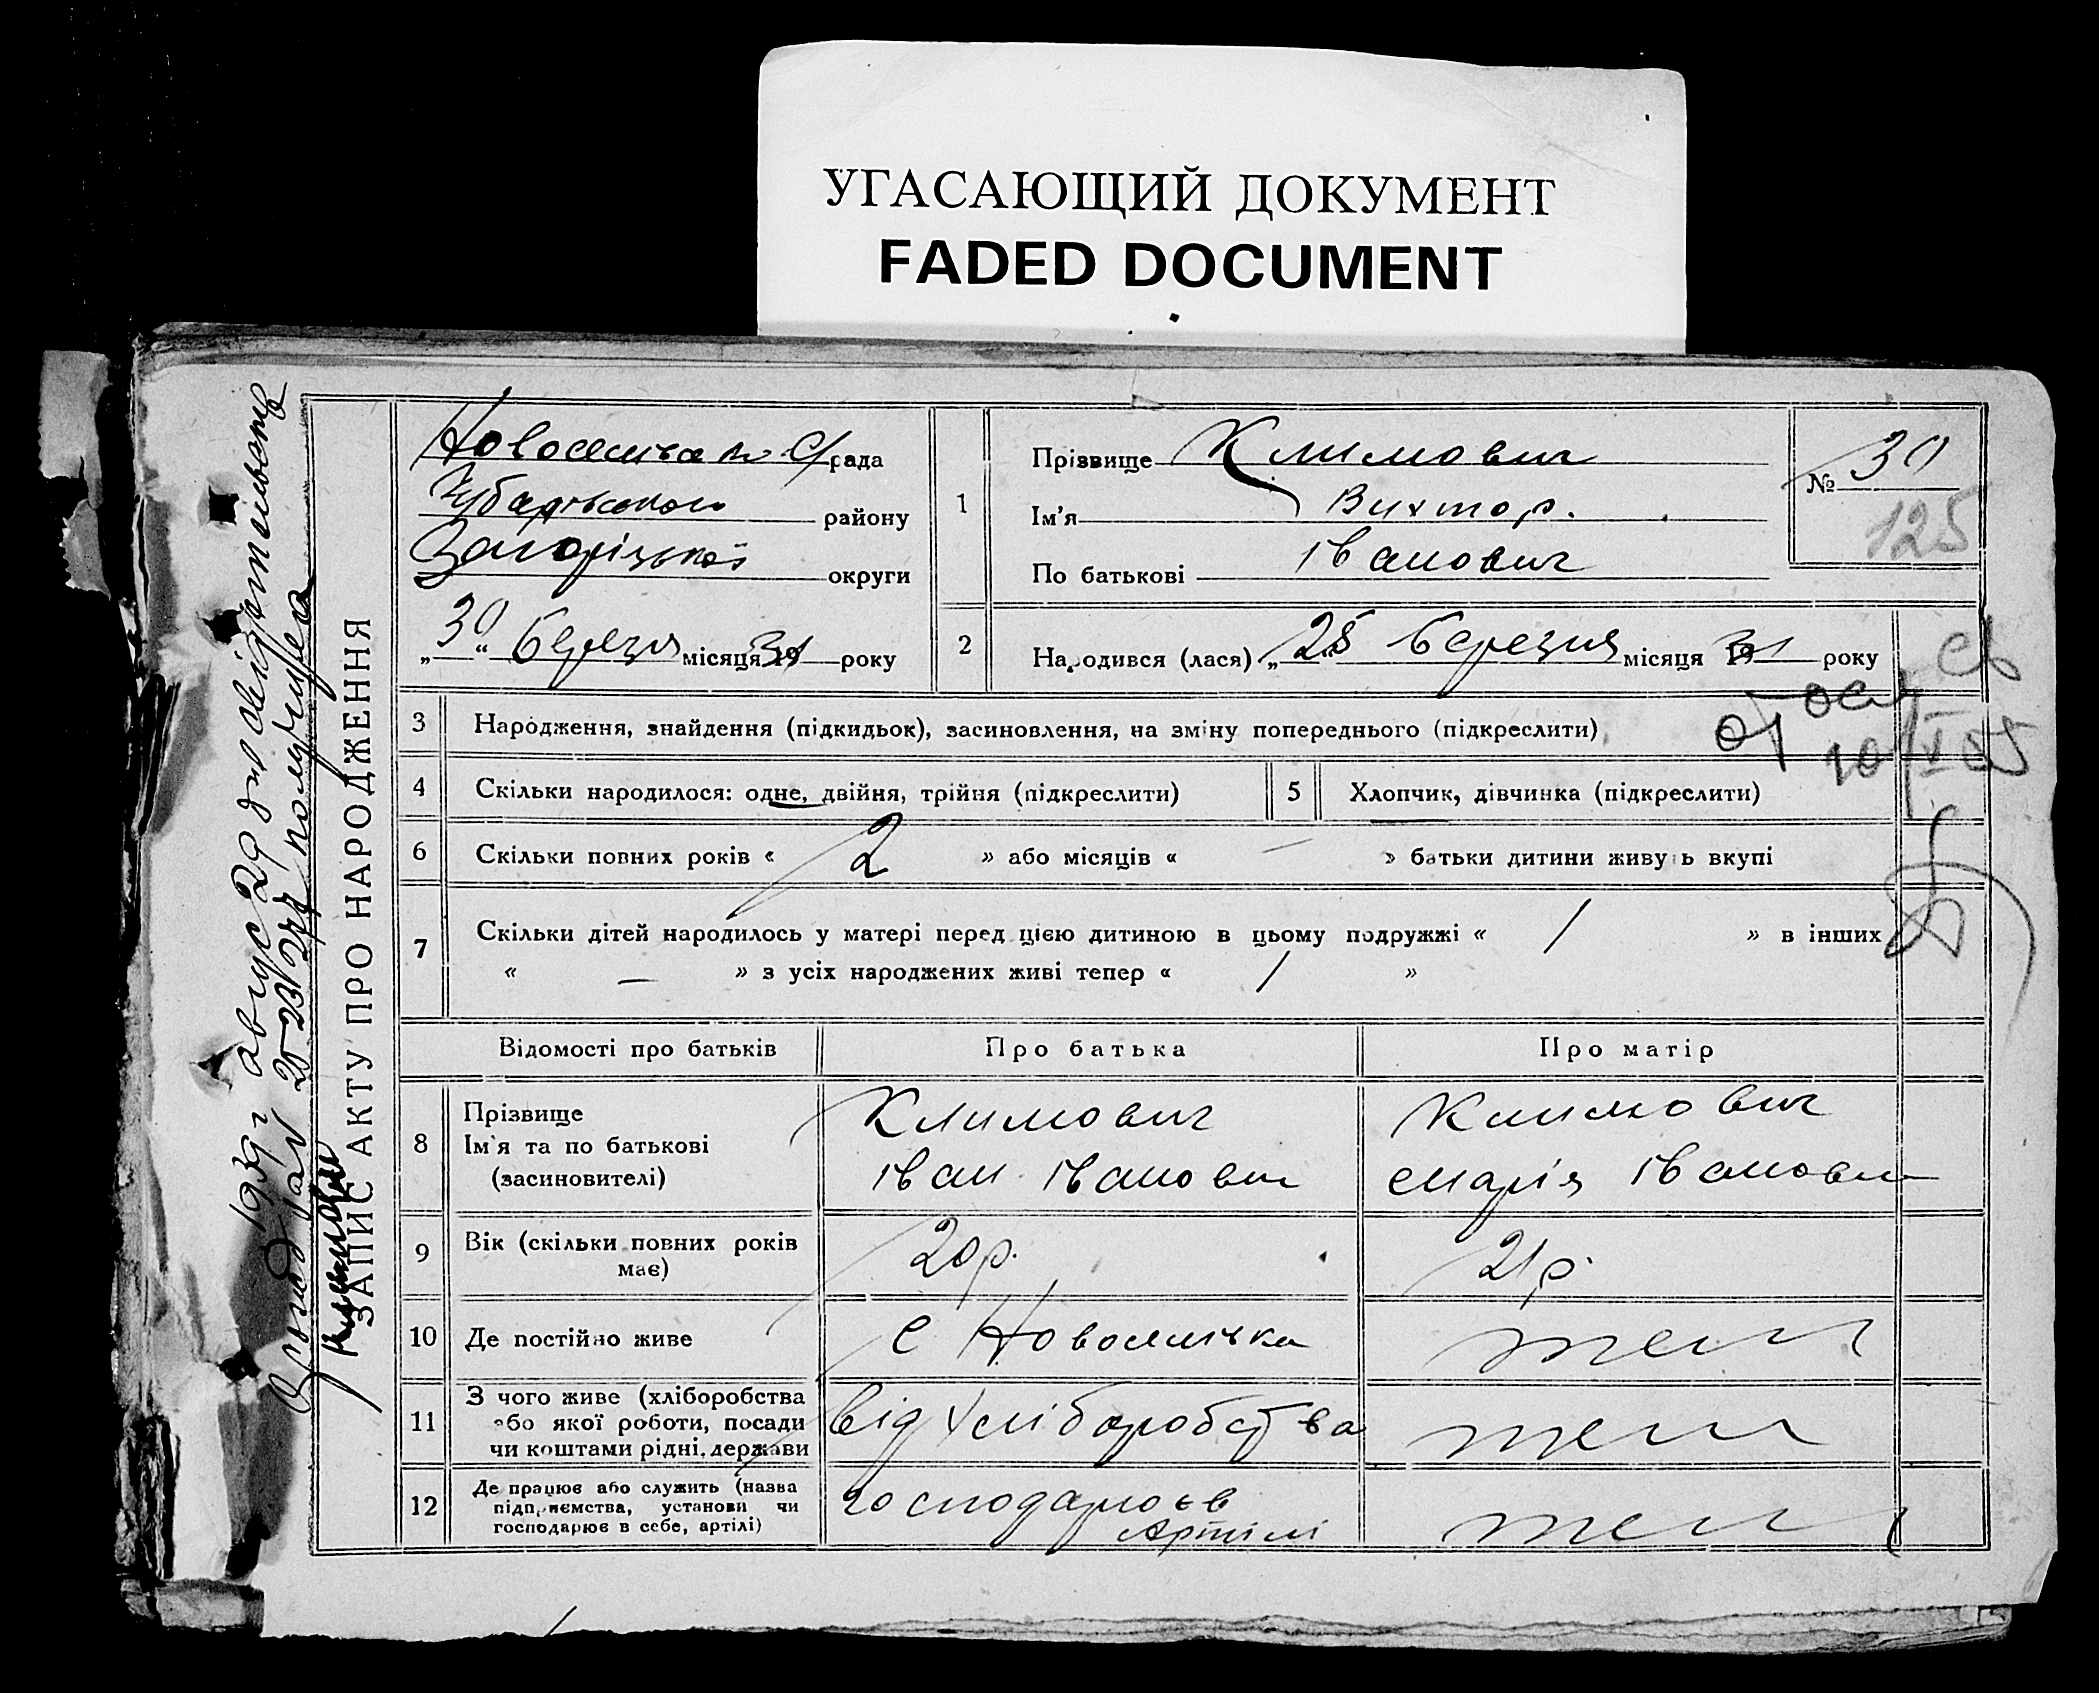 УГАСАЮЩИЙ ДОКУМЕНТ
FADED DOCUMENT
ЗАПИС АКТУ ПРО НАРОДЖЕННЯ
рада
району
округи
„30“ березня місяця 1931 року
1
Прізвище Климович
Ім'я Виктор.
По батькові Іванович
№ 30
125
2
Народився (лася) „28 березня місяця 1931 року
3 Народження, знайдення (підкидьок), засиновлення, на зміну попереднього (підкреслити)
4 Скільки народилося: одне, двійня, трійня (підкреслити)
5 Хлопчик, дівчинка (підкреслити)
6 Скільки повних років « 2 » або місяців « — » батьки дитини живуть вкупі
7 Скільки дітей народилось у матері перед цією дитиною в цьому подружжі « 1 » в інших
« — » з усіх народжених живі тепер « 1 »
Відомості про батьків
Про батька
Про матір
8
Прізвище
Ім'я та по батькові
(засиновителі)
Климович
Іван Іванович
Климович
Марія Іванови
9
Вік (скільки повних років
має)
20 р.
21 р.
10 Де постійно живе
с Новоселівка
теж
11
З чого живе (хліборобства
або якої роботи, посади
чи коштами рідні, держави
від хліборобства
теж
12
Де працює або служить (назва
підприємства, установи чи
господарює в себе, артілі)
господарює в
Артілі
теж